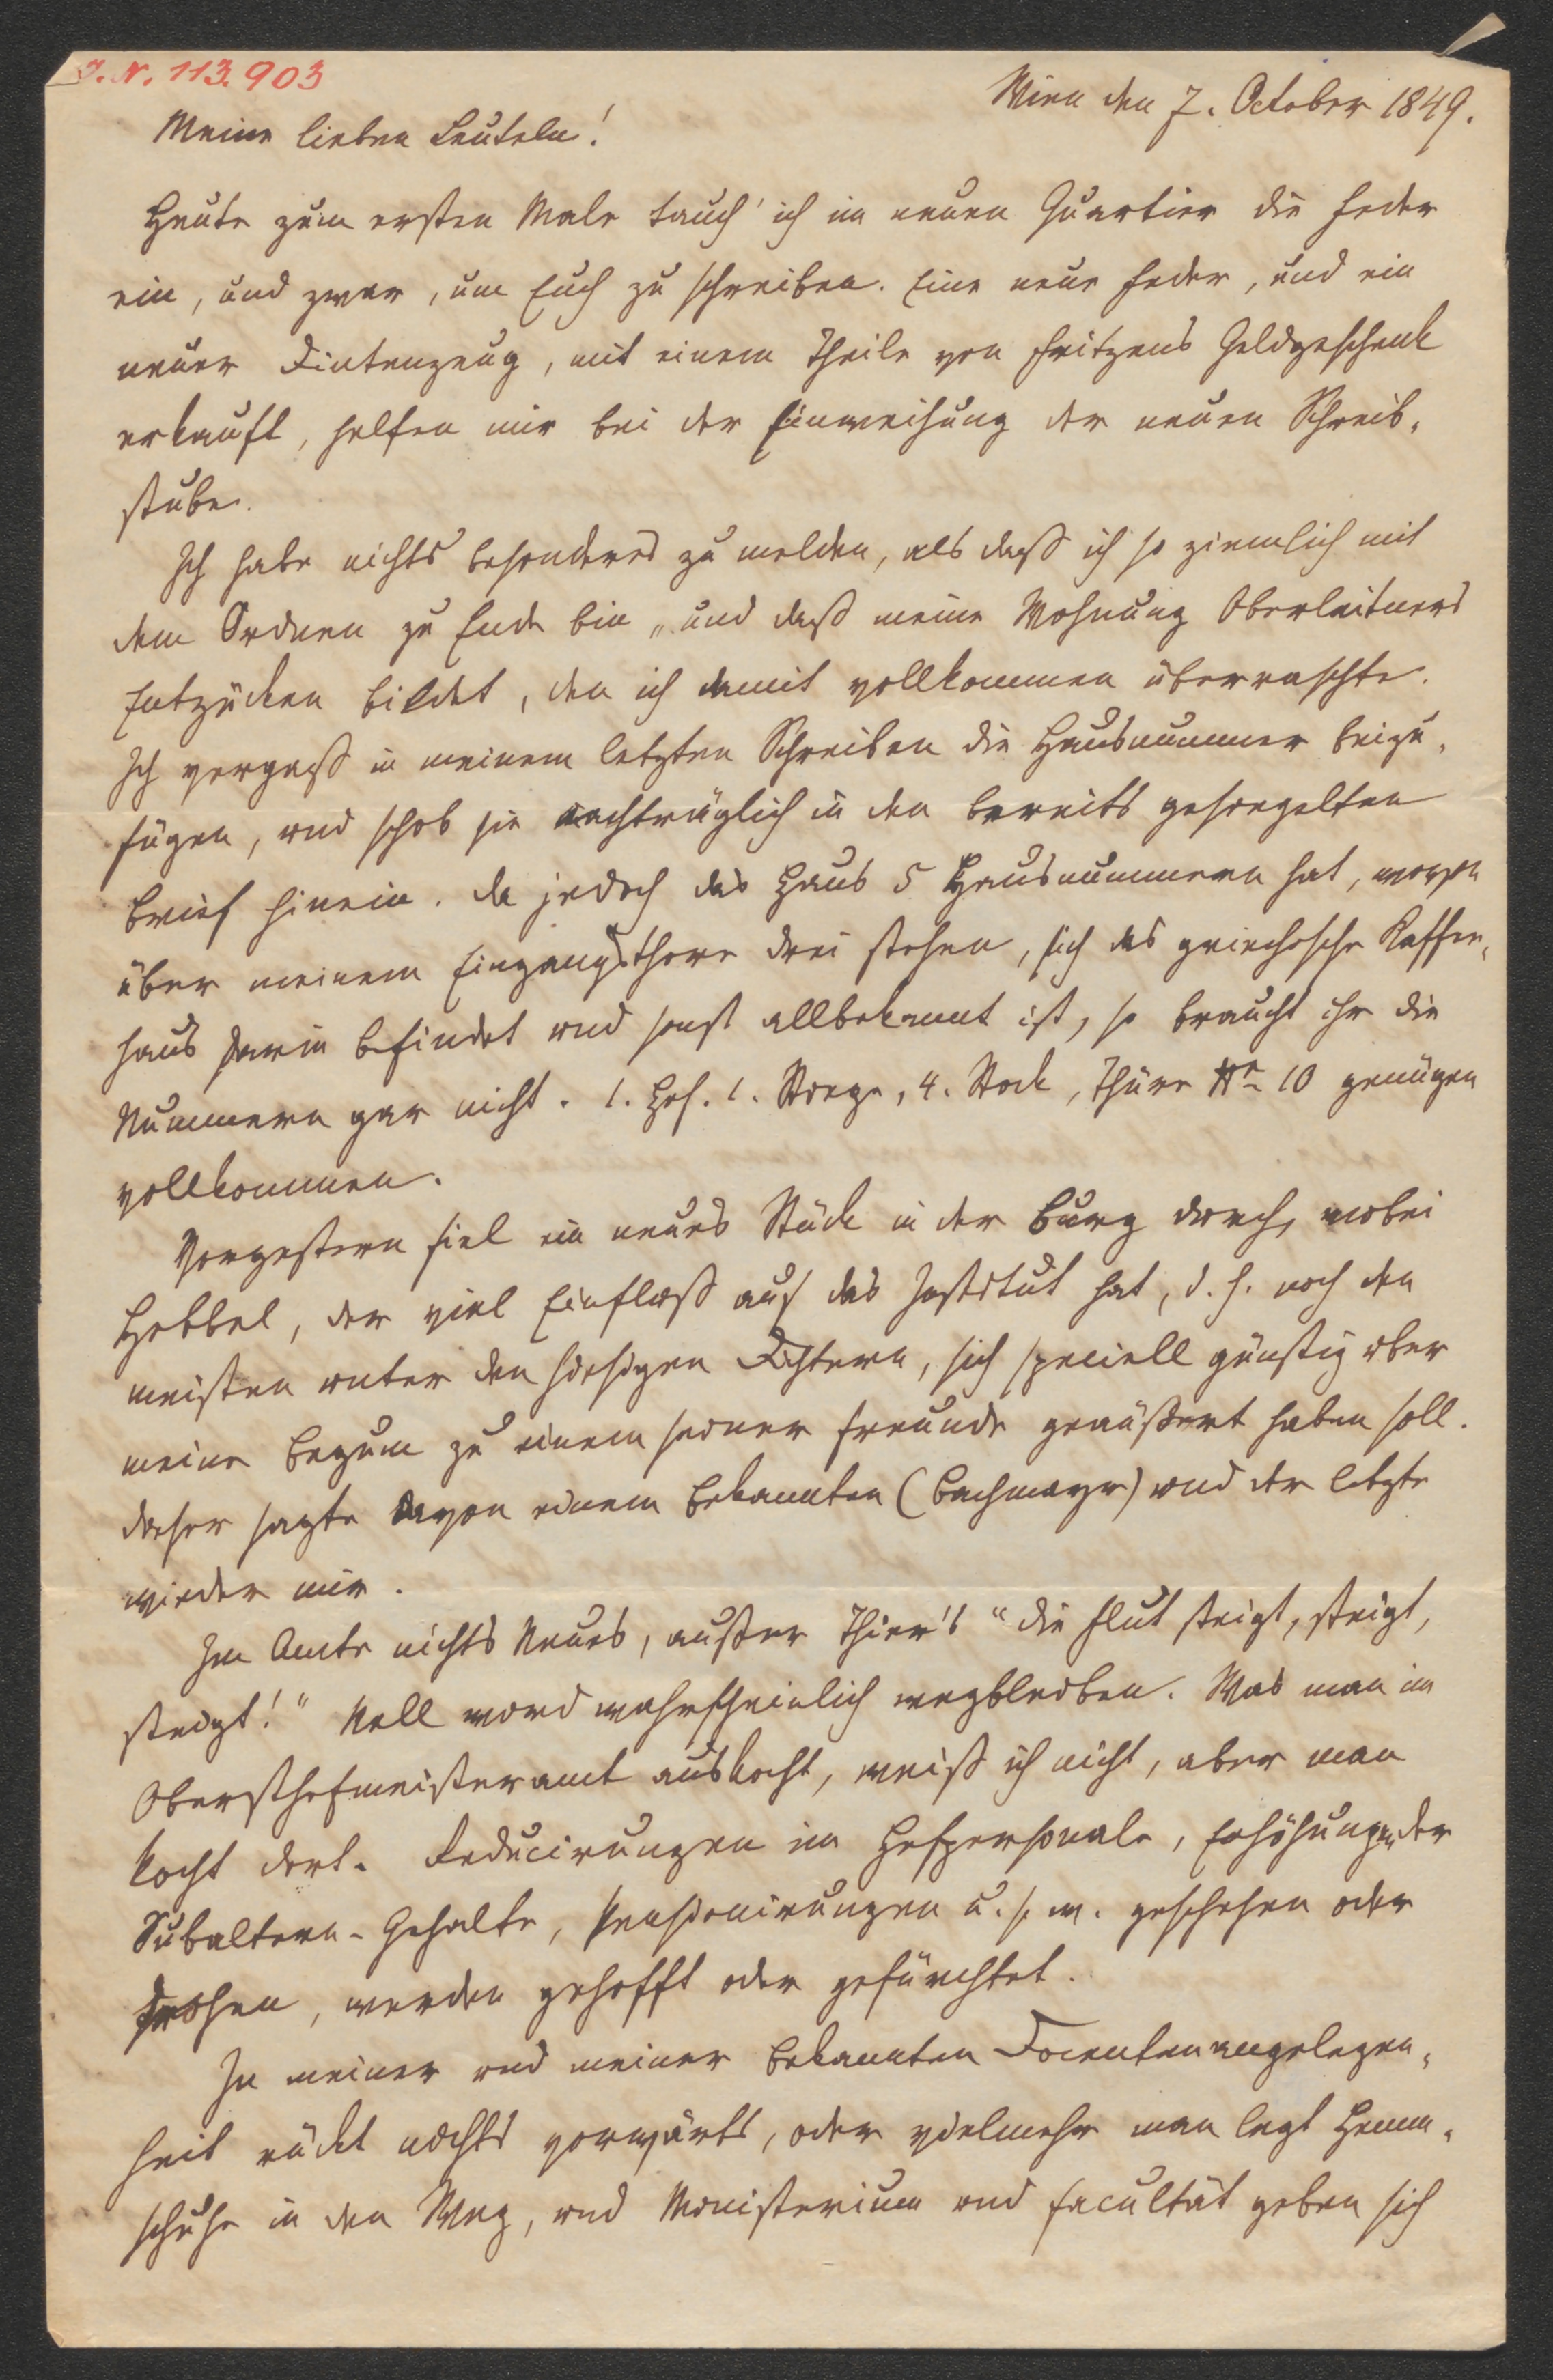 I. N. 113.903
Wien den 7. October 1849.
Meine lieben Leuteln!
Heute zum ersten Male tauch' ich im neuen Quartier die Feder
ein, und zwar, um Euch zu schreiben. Eine neue Feder, und ein
neuer Dintenzeug, mit einem Theile von Fritzens Geldgeschenk
erkauft, helfen mir bei der Einweihung der neuen Schreib-
stube.
Ich habe nichts besonderes zu melden, als daß ich so ziemlich mit
dem Ordnen zu Ende bin, und daß meine Wohnung Oberleitners
Entzücken bildet, den ich damit vollkommen überraschte.
Ich vergaß in meinem letzten Schreiben die Hausnummer beizu-
fügen, und schob sie nachträglich in den bereits gesiegelten
Brief hinein. Da jedoch das Haus 5 Hausnummern hat, wovon
über meinem Eingangsthore drei stehen, sich das griechische Kaffee-
haus darin befindet und sonst allbekannt ist, so braucht ihr die
Nummern gar nicht. 1. Hof. 1. Stiege, 4. Stock, Thüre Nr 10 genügen
vollkommen.
Vorgestern fiel ein neues Stück in der Burg durch, wobei
Hebbel, der viel Einfluß auf das Institut hat, d. h. noch den
meisten unter den hiesigen Dichtern, sich speciell günstig über
meine Begum zu einem seiner Freunde geäußert haben soll.
Dieser sagte davon einem Bekannten (Bachmayr) und der letzte
wieder mir.
Im Amte nichts Neues, außer Thier's "die Flut steigt, steigt,
steigt!" Nell wird wahrscheinlich wegbleiben. Was man im
Obersthofmeisteramt auskocht, weiß ich nicht, aber man
kocht dort. Reducirungen im Hofpersonale, Erhöhungen der
Subaltern-Gehalte, Pensionirungen u. s. w. geschehen oder
drohen, werden gehofft oder gefürchtet.
In meiner und meiner Bekannten Docentenangelegen-
heit rückt nichts vorwärts, oder vielmehr man legt Hemm-
schuhe in den Weg, und Ministerium und Facultät geben sich